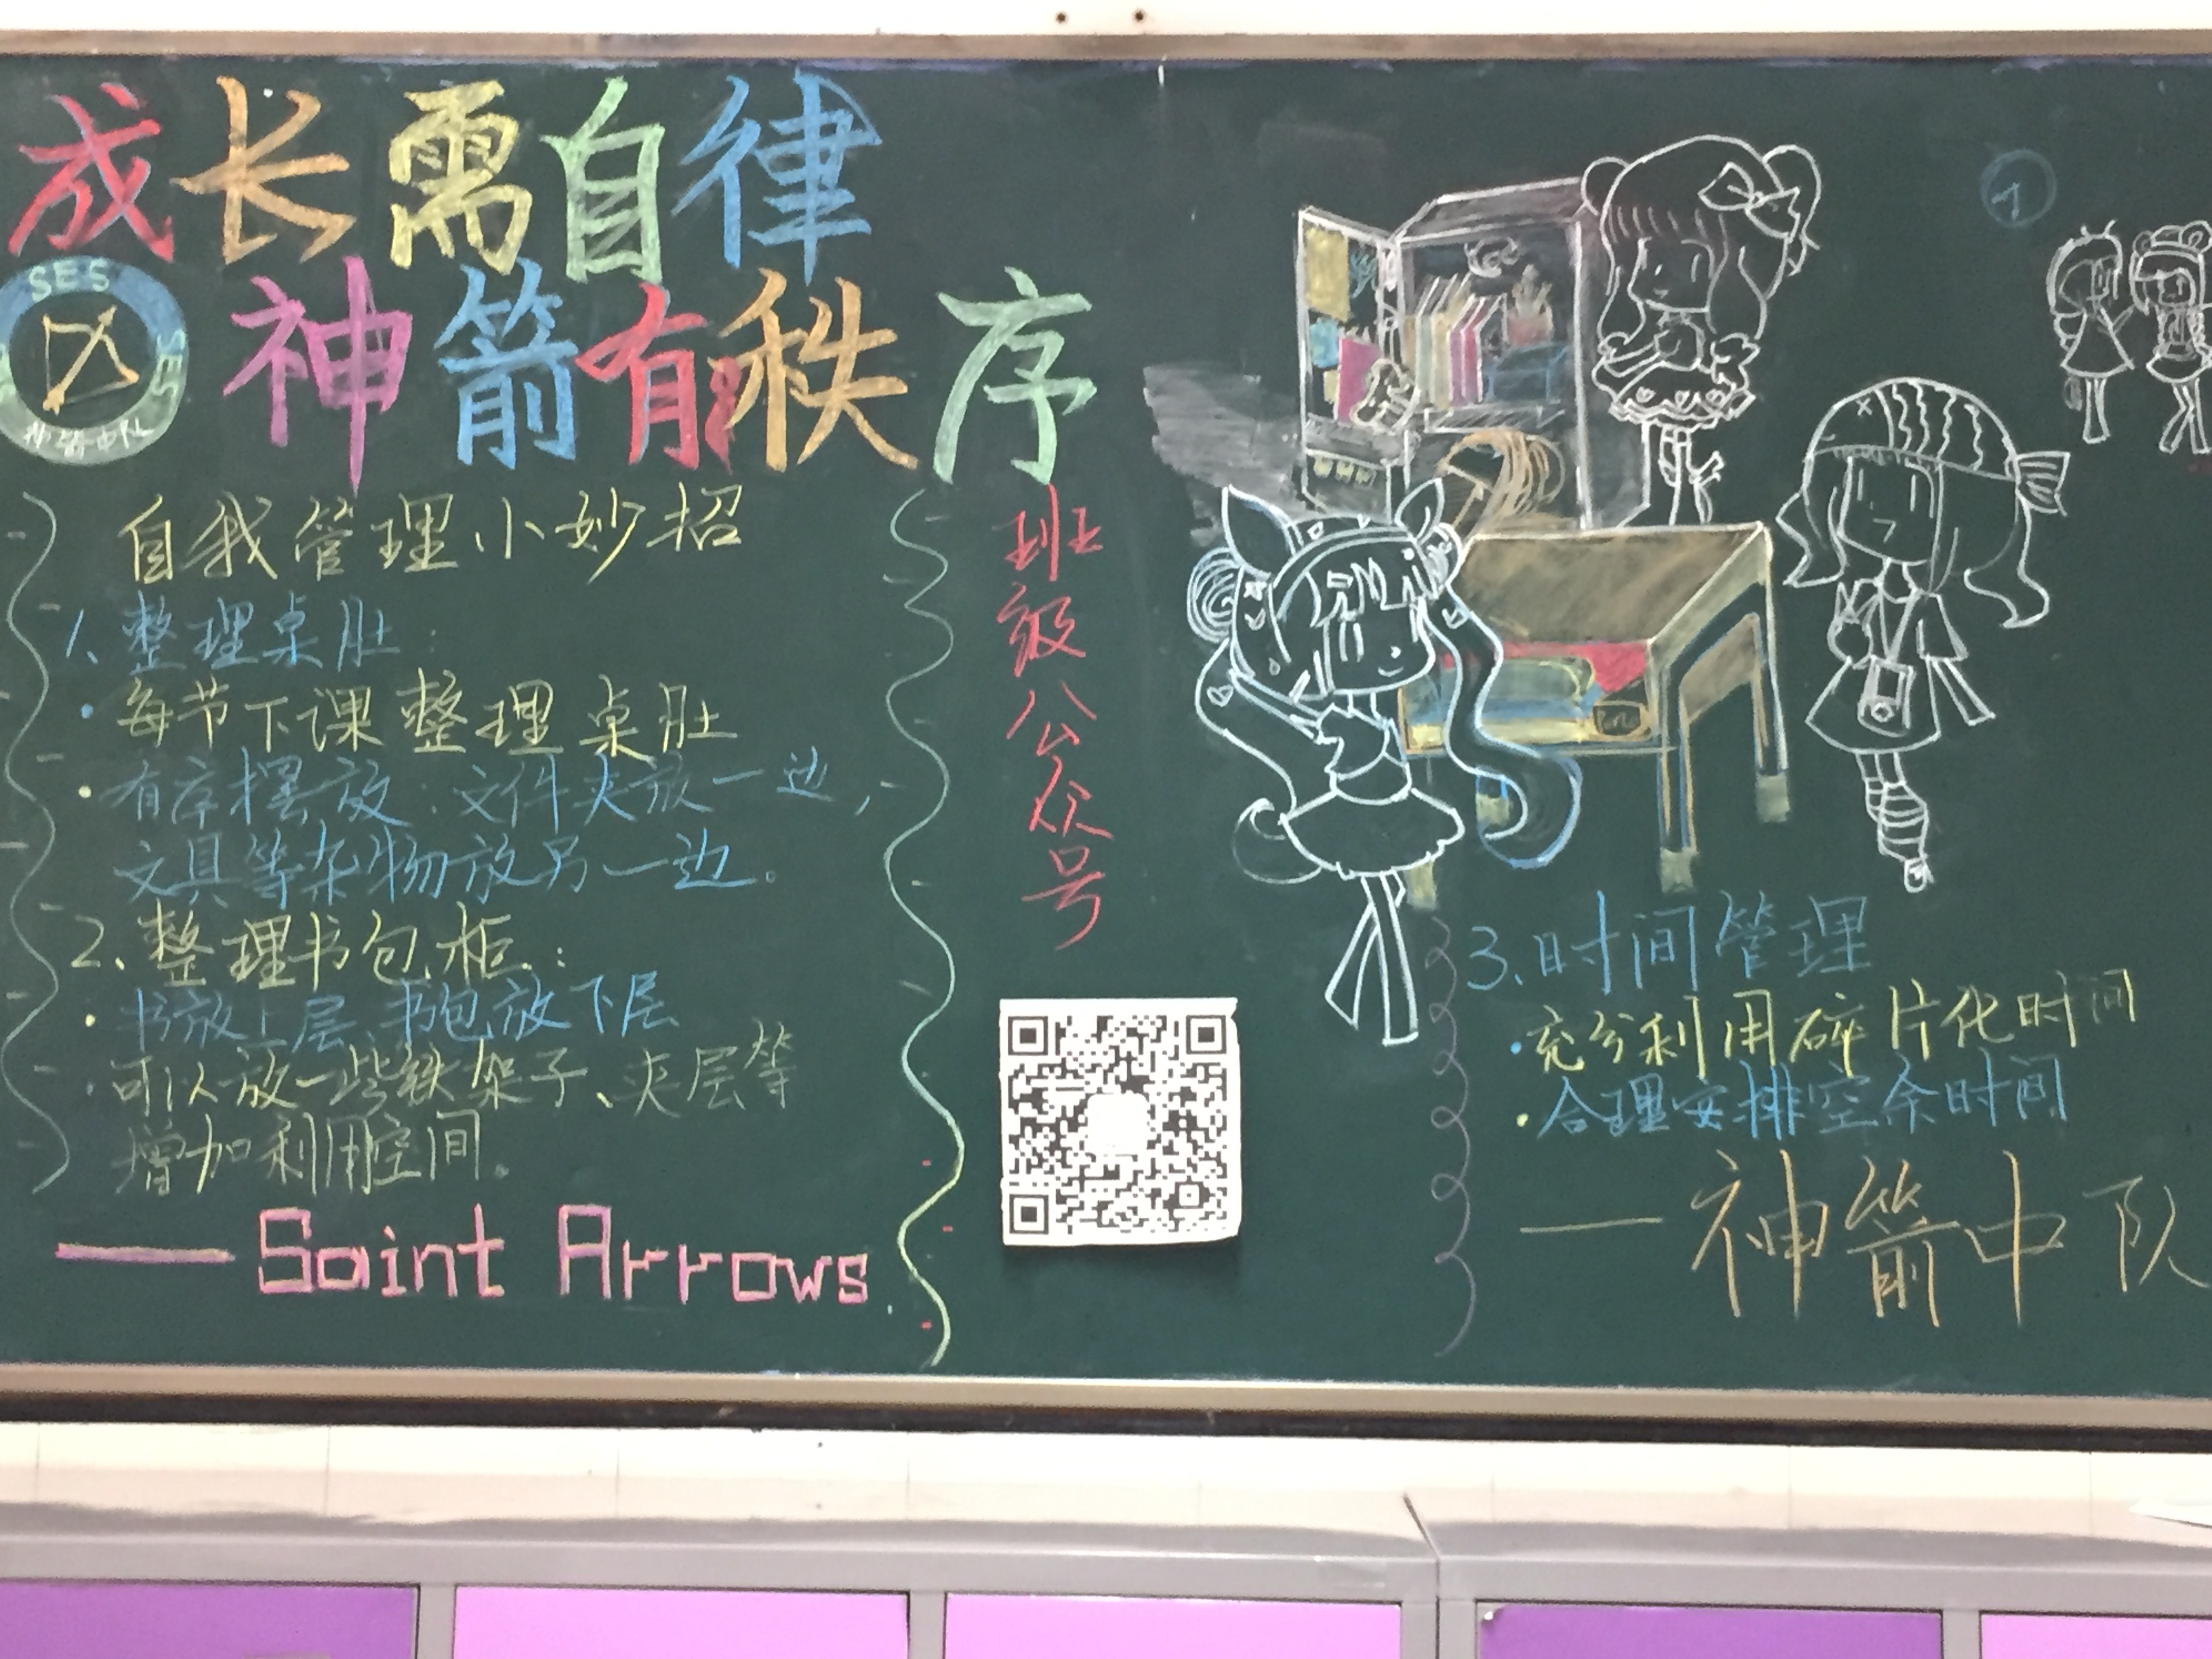 成长需自律
神箭有秩序
SES
SES
神箭中队
自我管理小妙招
1、整理桌肚:
·每节下课整理桌肚
·有序摆放:文件夹放一边,
文具等杂物放另一边。
2、整理书包柜:
·书放上层、书包放下层
·可以放一些铁架子、夹层等
增加利用空间。
——Saint Arrows.
班级公众号
3、时间管理
·充分利用碎片化时间
·合理安排空余时间
—神箭中队